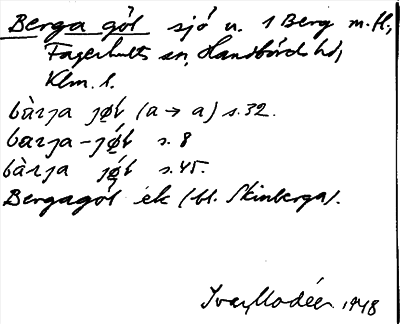 Berga göl sjö n. 1 Berg m. fl.,
Fagerhults sn, Handbörds hd,
Klm. l.
bàrja jøl (a → a) s. 32.
barja-jøl s. 8
bàrja jøl s. 45.
Bergagöl ek (bl. Skinberga).
Ivar Modéer 1948